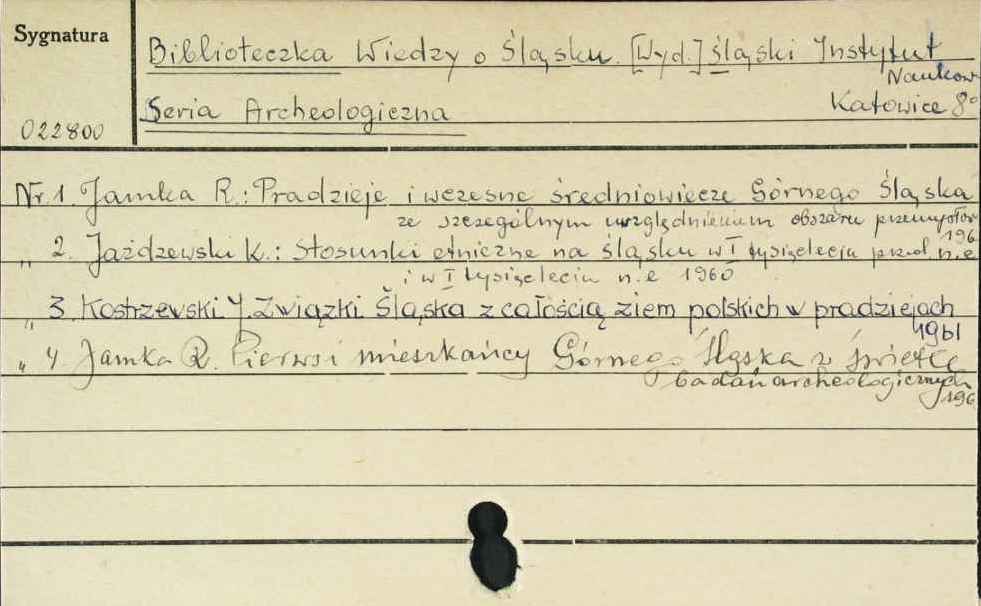 Sygnatura
Biblioteczka Wiedzy o Śląsku. [Wyd.] Śląski Instytut
Naukow
Seria Archeologiczna Katowice 8°
022800
Nr. 1. Jamka R.: Pradzieje i wczesne średniowiecze Górnego Śląska
ze szczególnym uwzględnieniem obszaru przemysłow
196
„ 2. Jażdżewski K.: Stosunki etniczne na Śląsku w I tysiącleciu przed n.e
i w I tysiącleciu n.e 1960
„ 3. Kostrzewski J. Związki Śląska z całością ziem polskich w pradziejach
1961
„ 4. Jamka R. Pierwsi mieszkańcy Górnego Śląska w świetle
badań archeologicznych
196